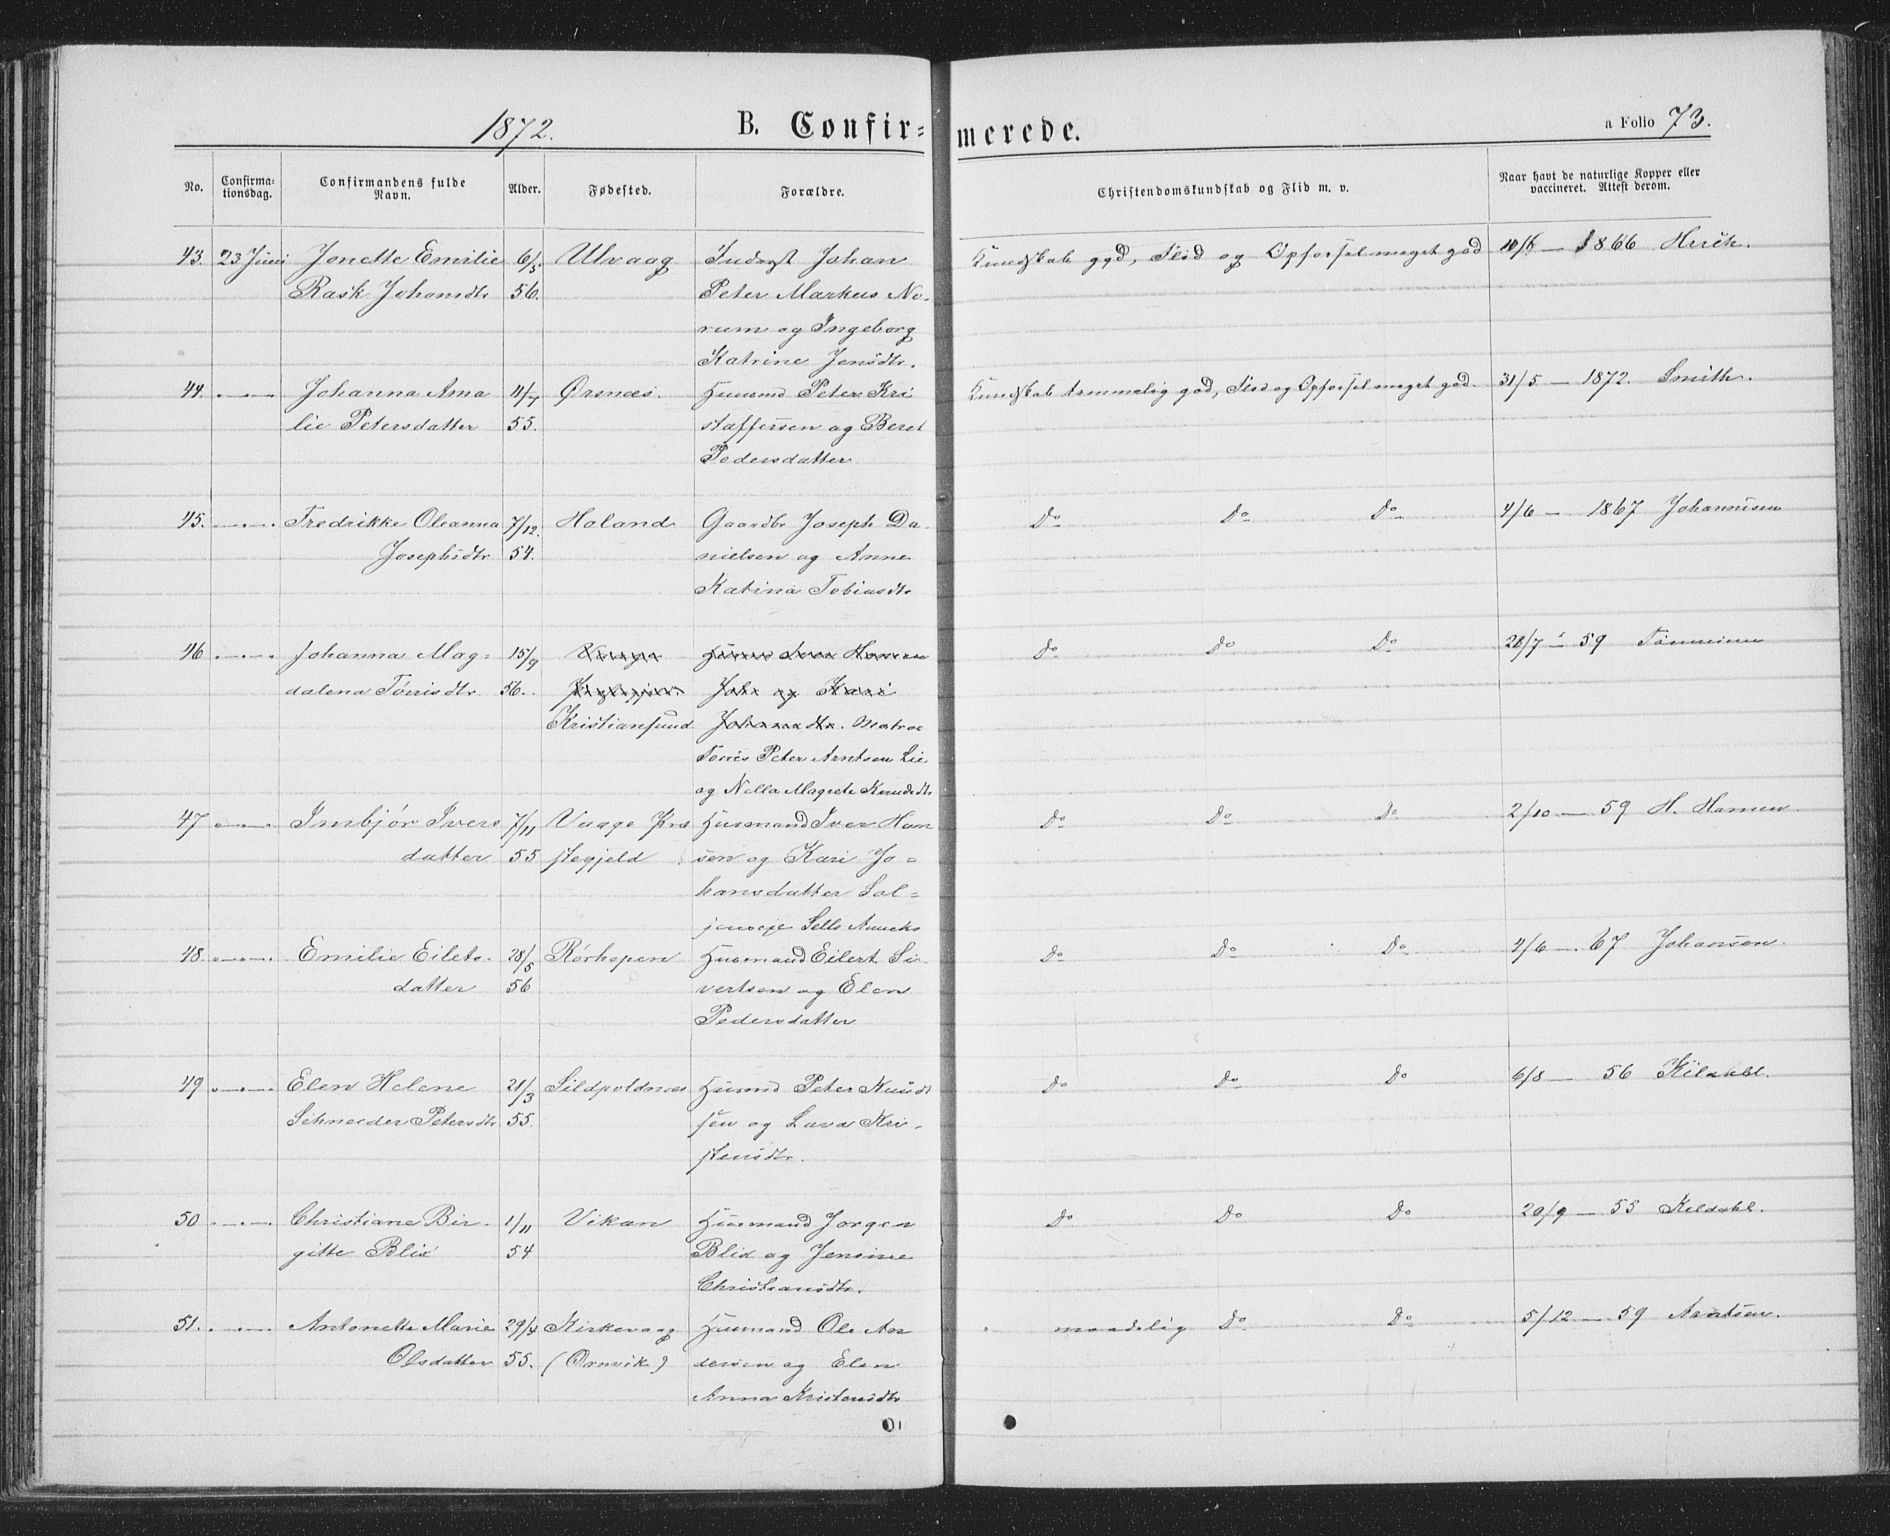 1872. B. Confirmerede. a Folio 73.
No. Confirmationsdag. Confirmandens fulde Navn. Alder. Fødested. Forældre. Christendomskundskab og Flid m. v. Naar havt de naturlige Kopper eller vaccineret. Attest derom.
43. 23 Juni Jonette Emilie 6/5 Ulvaag Inderst Johan Kundskab god, Flid og Opførsel meget god 10/6 — 1866
Rask Johansdtr 56. Peter Markus No-
rum og Ingeborg
Katrine Jensdtr.
44. Johanna Ama 11/7 Ørsnæs. Husmnd Peter Kri Kundskab temmelig god, Flid og Opførsel meget god. 31/5 — 1872. Smith.
lie Petersdatter 55. stoffersen og Beret
Pedersdatter
45. Fredrikke Oleanna 7/12 Holand Gaardbr Joseph Da- Do Do Do 4/6 — 1867 Johannesen
Josephsdtr 54. nielsen og Anne
Katrina Tobiasdtr
46. Johanna Mag- 15/9 Do Do Do 28/7 — 59
dalena Tørrisdtr 56. og Kari
Kristiansund Johansdtr. Matros
Tørris Peter Arntsen Lie
og Nella Magrete Knudsdtr
47 Imbjør Ivers 7/11 Vaage Præ Husmand Iver Han Do Do Do 2/10 — 59 H. Hansen
datter 55 stegjeld sen og Kari Jo-
hansdatter Sol-
48. Emilie Eilets- 28/5 Rørhopen Husmand Eilert Si- Do Do Do 4/6 — 67 Johansen.
datter 56 vertsen og Elen
Pedersdatter
49 Elen Helene 21/3 Sildpoldnæs Husmd Peter Knudt Do Do Do 6/8 — 56 Kildahl.
Schneider Petersdtr 55. sen og Lava Kri-
stensdtr.
50 Christiane Bir- 1/11 Vikan Husmand Jørgen Do Do Do 20/9 — 55 Kildahl.
gitte Blix 54 Blix og Jensine
Christiansdtr.
51. Antonette Marie 29/4 Kirkevaag Husmand Ole An maadelig Do Do 5/12 — 59 Arntsen.
Olsdatter 55. (Ørnvik) dersen og Elen
Anna Kristensdtr